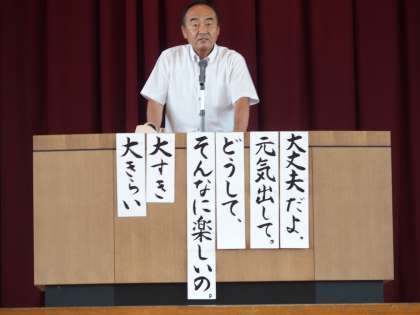 大丈夫だよ、
元気出して。
どうして、
そんなに楽しいの。
大すき
大きらい